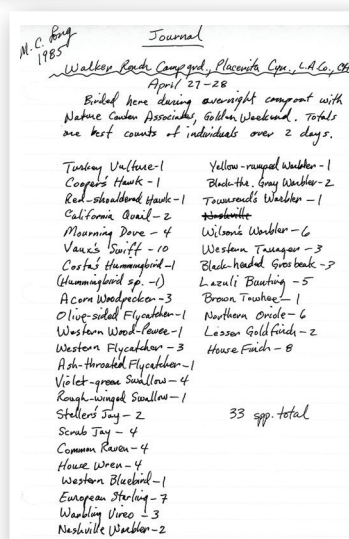 M.C. Long
1985
Journal
Walker Ranch Campgrd., Placerita Cyn., L.A. Co., CA
April 27-28
Birded here during overnight campout with
Nature Center Associates, Golden Weekend. Totals
are best counts of individuals over 2 days.
Turkey Vulture - 1
Cooper's Hawk - 1
Red-shouldered Hawk - 1
California Quail - 2
Mourning Dove - 4
Vaux's Swift - 10
Costa's Hummingbird - 1
(Hummingbird sp. - 1)
Acorn Woodpecker - 3
Olive-sided Flycatcher - 1
Western Wood-Pewee - 1
Western Flycatcher - 3
Ash-throated Flycatcher - 1
Violet-green Swallow - 4
Rough-winged Swallow - 1
Steller's Jay - 2
Scrub Jay - 4
Common Raven - 4
House Wren - 4
Western Bluebird - 1
European Starling - 7
Warbling Vireo - 3
Nashville Warbler - 2
Yellow-rumped Warbler - 1
Black-thr. Gray Warbler - 2
Townsend's Warbler - 1
Nashville
Wilson's Warbler - 6
Western Tanager - 3
Black-headed Grosbeak - 3
Lazuli Bunting - 5
Brown Towhee - 1
Northern Oriole - 6
Lesser Goldfinch - 2
House Finch - 8
33 spp. total